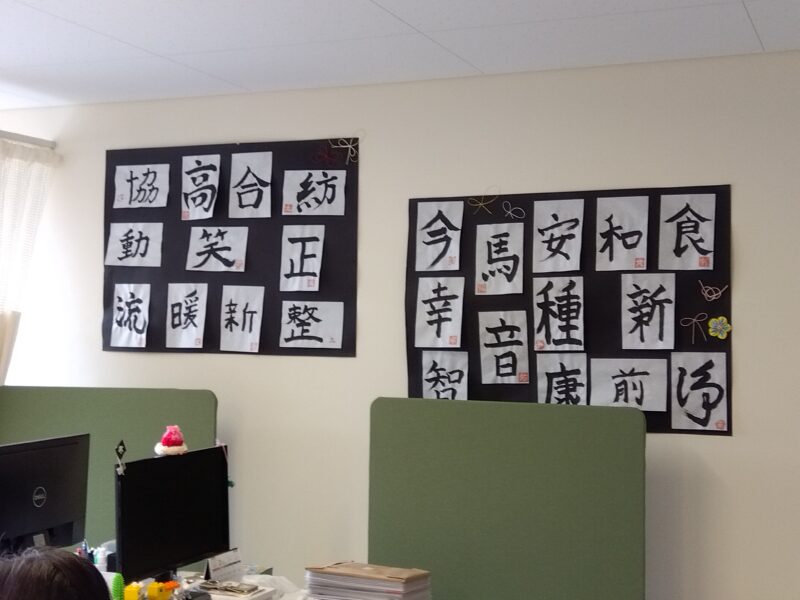 協 高 合 紡
動 笑 正
流 暖 新 整
今 馬 安 和 食
幸 音 種 新
智 康 前 浄
DELL